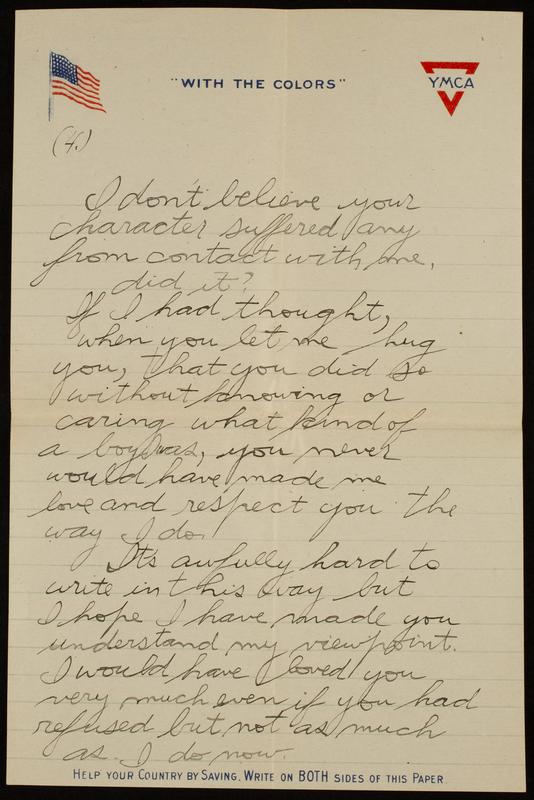 "WITH THE COLORS"
YMCA
(4.)
I don't believe your
character suffered any
from contact with me,
did it?
If I had thought,
when you let me hug
you, that you did so
without knowing or
caring what kind of
a boy I was, you never
would have made me
love and respect you the
way I do.
It's awfully hard to
write in this way but
I hope I have made you
understand my viewpoint.
I would have loved you
very much even if you had
refused but not as much
as I do now.
HELP YOUR COUNTRY BY SAVING. WRITE ON BOTH SIDES OF THIS PAPER